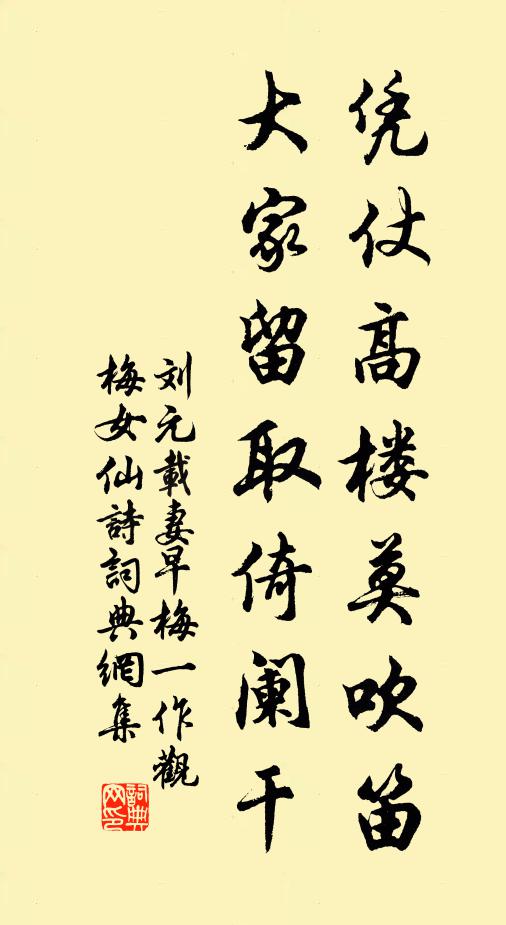 凭仗高楼莫吹笛
大家留取倚阑干
刘元載妻早梅一作觀
梅女仙詩詞典網集
詞典网印